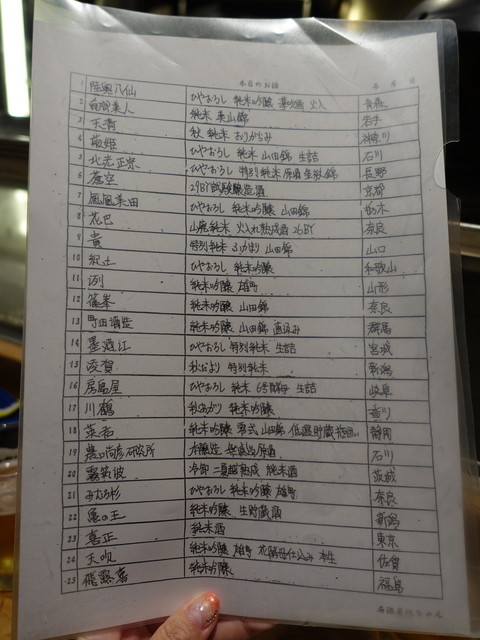 本日のお酒 年 月 日
1 陸奥八仙 ひやおろし 純米吟醸 火入 青森
2 純米 美山錦 岩手
3 天青 秋 純米 おりがらみ 神奈川
4 ひやおろし 純米 山田錦 生詰 石川
5 北光正宗 ひやおろし 特別純米 長野
6 蒼空 29BY試験醸造酒 京都
7 鳳凰美田 ひやおろし 純米吟醸 山田錦 栃木
8 花巴 山廃純米 火入れ熟成酒 26BY 奈良
9 貴 特別純米 ふかまり 山田錦 山口
10 紀土 ひやおろし 純米吟醸 和歌山
11 洌 純米吟醸 雄町 山形
12 篠峯 純米吟醸 山田錦 奈良
13 町田酒造 純米吟醸 山田錦 直汲み 群馬
14 墨廼江 ひやおろし 特別純米 生詰 宮城
15 秋だより 特別純米 新潟
16 房島屋 ひやおろし 純米 6号酵母 生詰 岐阜
17 川鶴 秋あがり 純米吟醸 香川
18 英君 純米吟醸 山田錦 低温貯蔵 静岡
19 農口尚彦研究所 本醸造 無濾過原酒 石川
20 霧筑波 冷卸 二夏越熟成 純米酒 茨城
21 みむろ杉 ひやおろし 純米吟醸 雄町 奈良
22 亀の王 純米吟醸 生貯蔵酒 新潟
23 喜正 純米酒 東京
24 天吹 純米吟醸 雄町 花酵母仕込み 佐賀
25 飛露喜 純米吟醸 福島